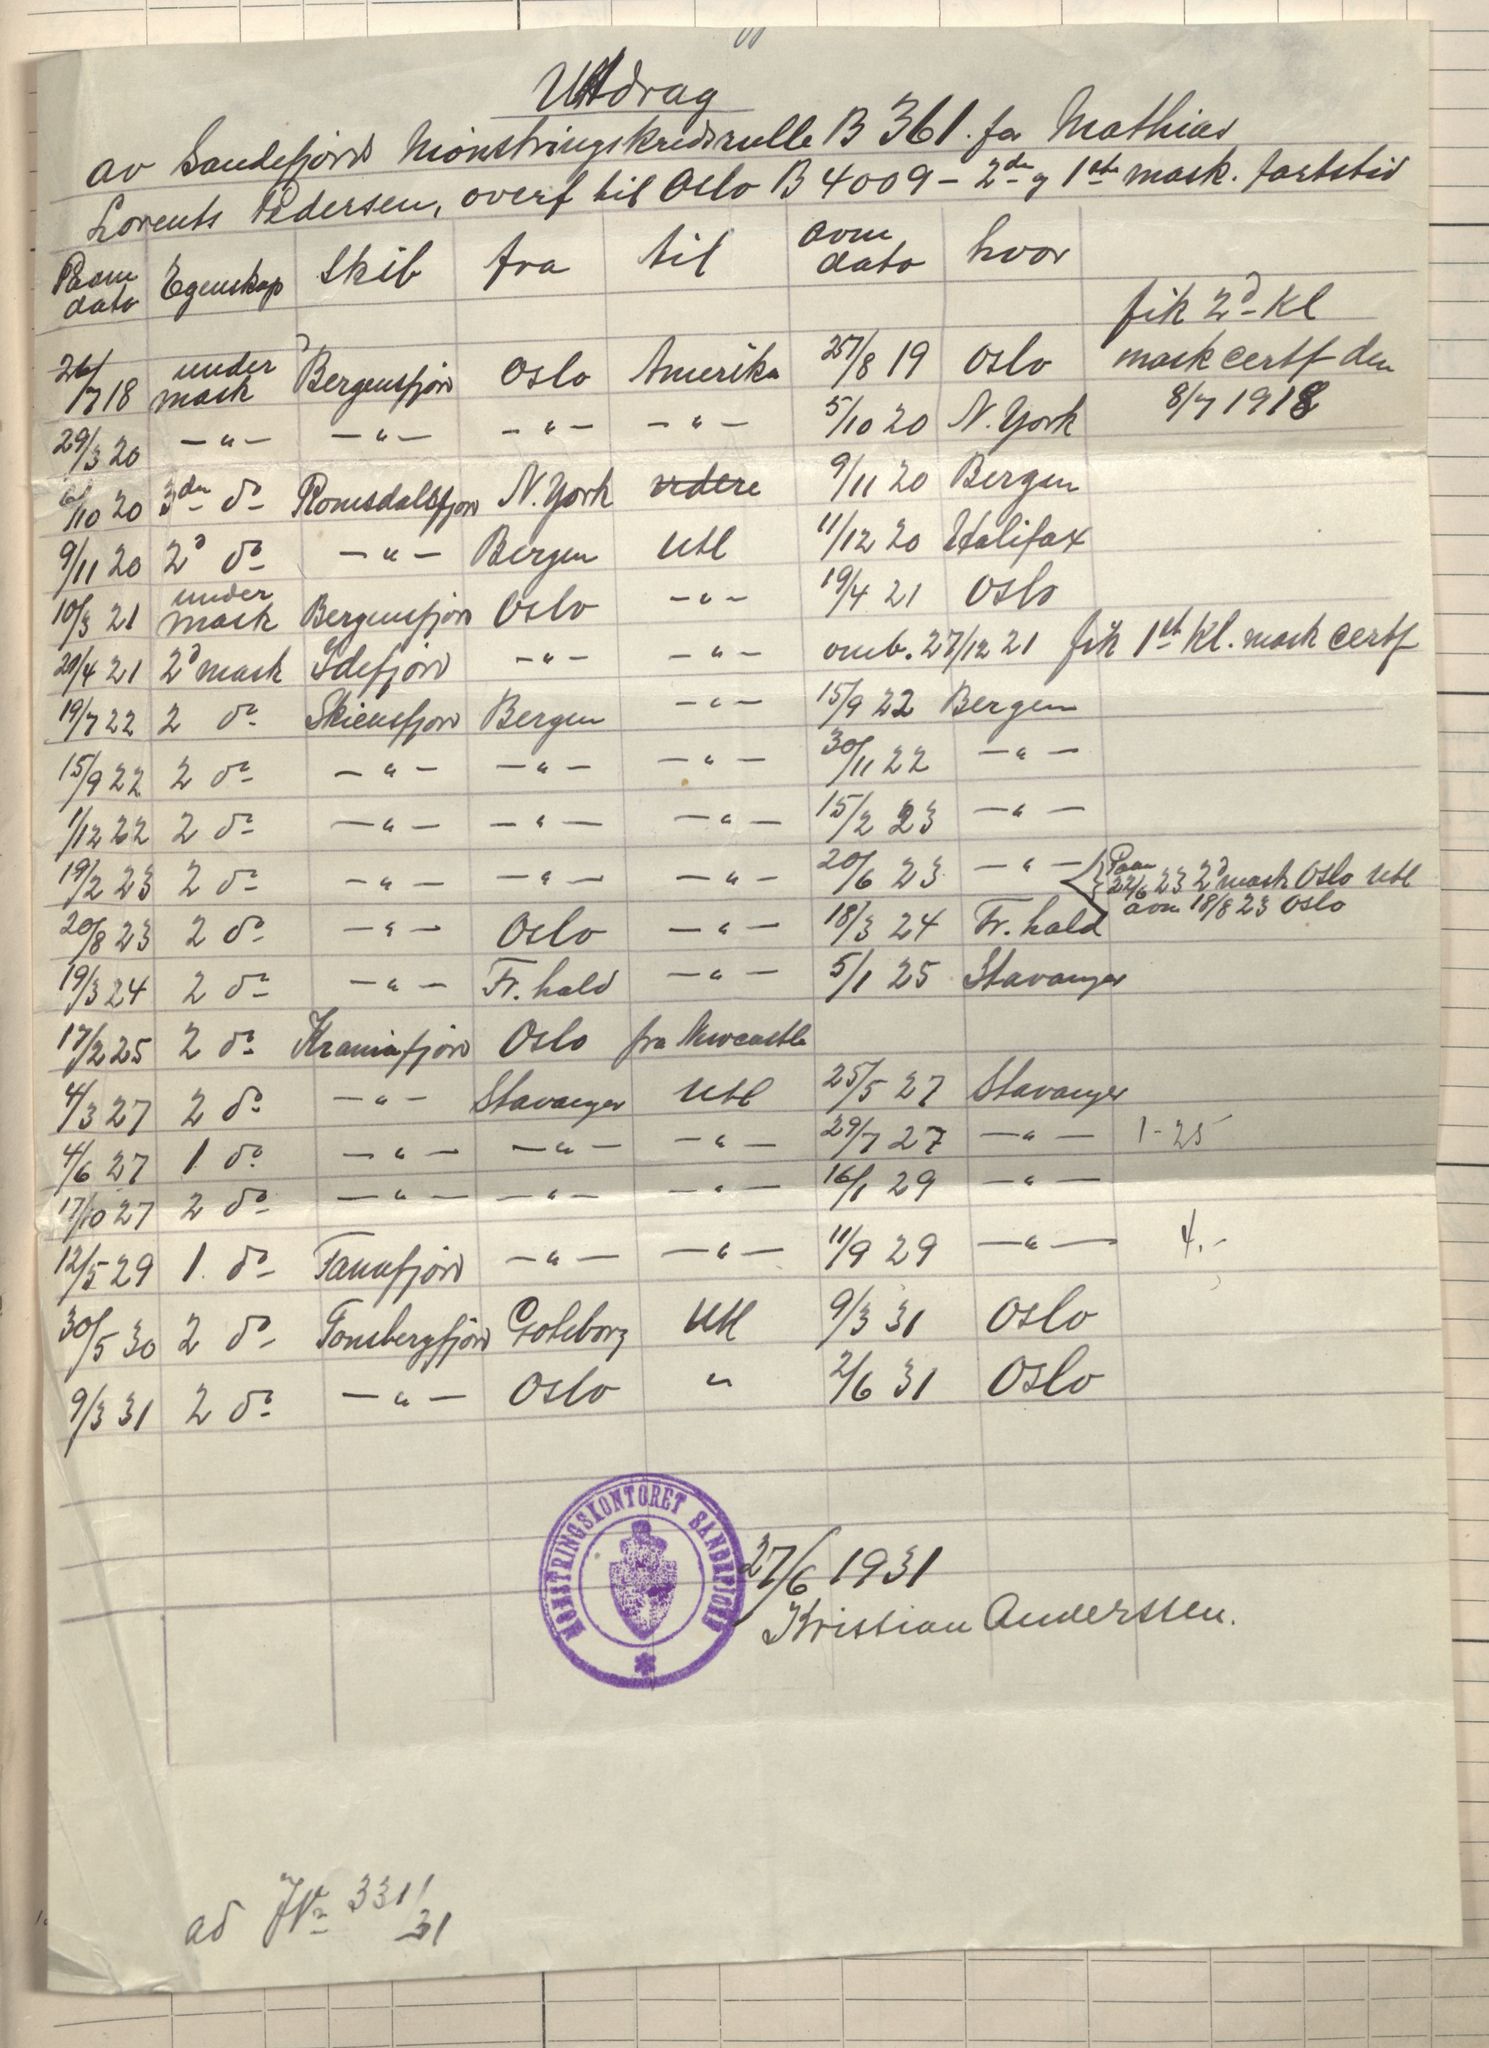 Utdrag
av Sandefjords Mønstringskredsrulle B 361. for Mathias
Lorents Pedersen, overf til Oslo B 4009 - 2den og 1ste mask. fartstid
Paam dato Egenskap Skib fra til avm dato hvor
fik 2d Kl
26/7 18 under mask Bergensfjord Oslo Amerika 25/8 19 Oslo mask certf den
29/3 20 -"- -"- -"- -"- 5/10 20 N. York 8/7 1918
6/10 20 3die do Romsdalsfjord N. York videre 9/11 20 Bergen
9/11 20 2d do -"- Bergen Utl 11/12 20 Halifax
10/3 21 under mask Bergensfjord Oslo -"- 19/4 21 Oslo
20/4 21 2d mask Idefjord -"- -"- omb. 27/12 21 fik 1ste Kl. mask certf
19/7 22 2 do Skiensfjord Bergen -"- 15/9 22 Bergen
15/9 22 2 do -"- -"- -"- 30/11 22 -"-
1/12 22 2 do -"- -"- -"- 15/2 23 -"-
19/2 23 2 do -"- -"- -"- 20/6 23 -"- Paam
22/6 23 2d mask Oslo Utl
avm 18/8 23 Oslo
20/8 23 2 do -"- Oslo -"- 18/3 24 Fr. hald
19/3 24 2 do -"- Fr. hald -"- 5/1 25 Stavanger
17/2 25 2 do Kraniafjord Oslo fra Newcastle
4/3 27 2 do -"- Stavanger Utl 25/5 27 Stavanger
4/6 27 1 do -"- -"- -"- 29/7 27 -"- 1-25
17/10 27 2 do -"- -"- -"- 16/1 29 -"-
12/5 29 1. do Tanafjord -"- -"- 11/9 29 -"- 4.-
30/5 30 2 do Tønsbergfjord Gøteborg Utl 9/3 31 Oslo
9/3 31 2 do -"- Oslo " 2/6 31 Oslo
MØNSTRINGSKONTORET SANDEFJORD
27/6 1931
Kristian Anderssen.
ad JNo 331/31